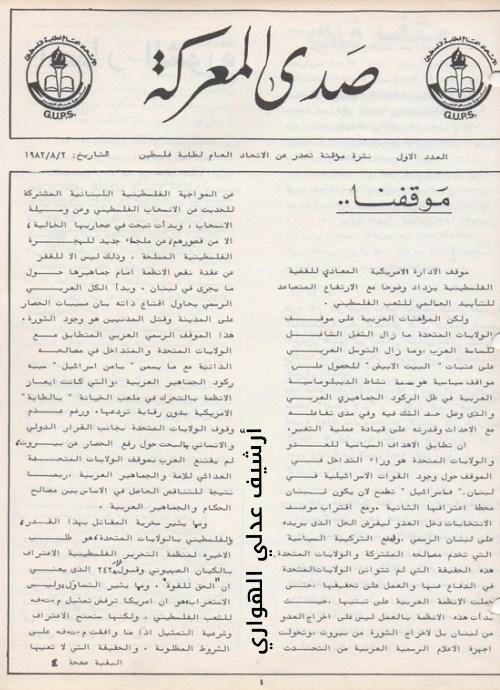 صدى المعركة
G.U.P.S.
G.U.P.S.
العدد الاول    نشرة مؤقتة تصدر عن الاتحاد العام لطلبة فلسطين    التاريخ: ١٩٨٢/٨/٢
مَوقفنا..
موقف الادارة الامريكية المعادي للقضية
الفلسطينية يزداد وضوحا مع الارتفاع المتصاعد
للتأييد العالمي للشعب الفلسطيني .
ولكن المراهنات العربية على موقف
الولايات المتحدة ما زال الشغل الشاغل
لساسة العرب ،وما زال التوسل العربي
على عتبات " البيت الابيض" للحصول على
مواقف سياسية هو سمة نشاط الدبلوماسية
العربية في ظل الركود الجماهيري العربي
والذي وصل حد الشك فيه وفي مدى تفاعله
مع الاحداث وقدرته على قيادة عملية التغيير.
ان تطابق الاهداف السياسية للعدو
والولايات المتحدة هو وراء التداخل في
الموقف حول وجود القوات الاسرائيلية في
لبنان." فاسرائيل " تطمح لان يكون لبنان
محطة اعترافها الثانية ،ومع اقتراب موعد
الانتخابات دخل العدو ليفرض الحل الذي يريده
على لبنان الرسمي ،وليضع التركيبة السياسية
التي تخدم مصالحه المشتركة والولايات المتحدة
هذه الحقيقة التي لم تتوانى الولايات المتحدة
في الدفاع عنها والعمل على تحقيقها ،حتى
عملت الانظمة العربية على تبنيها ،حيث
بدأت هذه الانظمة بالعمل ليس على اخراج العدو
من لبنان بل لاخراج الثورة من بيروت ،وتحولت
اجهزة الاعلام الرسمية العربية من التحدث
عن المواجهة الفلسطينية اللبنانية المشتركة
للحديث عن الانسحاب الفلسطيني وعن وسيلة
الانسحاب ، وبدأت تبحث في صحاريها الخالية
الا من قصورهم عن ملجأ جديد للهجرة
الفلسطينية المسلحة ، وذلك ليس الا للقفز
عن عقدة نقص الانظمة امام جماهيرها حول
ما يجري في لبنان . وبدأ الكل العربي
الرسمي يحاول اقناع ذاته بان مسببات الحصار
على المدينة وقتل المدنيين هو وجود الثورة.
هذا الموقف الرسمي العربي المتطابق مع
الولايات المتحدة والمتداخل في مصالحه
الذاتية مع ما يسمى " بامن اسرائيل "
ركود الجماهير العربية ،والتي كانت ايعاز
الانظمة بالتحرك في ملعب الخيانة " بالطابة"
الامريكية بدون رقابة تردعها، ورغم عدم
وقوف الولايات المتحدة بجانب القرار الدولي
والانساني بالبحث حول رفع الحصار عن بيروت،
لم يقتنع العرب بموقف الولايات المتحدة
العدائي للامة والجماهير العربية ،ربما
نتيجة للتناقض الحاصل في الاساس بين مصالح
الحكام والجماهير العربية .
وما يثير سخرية المقاتل بهذا القدر،
والفلسطيني بالولايات المتحدة،هو طلب
الاخيرة لمنظمة التحرير الفلسطينية الاعتراف
بالكيان الصهيوني وقبول ٢٤٢ الذي يعني
ان "الحق للقوة" . وما يثير التساؤل،وليس
الاستغراب،هو ان امريكا ترفض تمثيل م.ت.ف
للشعب الفلسطيني ، ولكنها ستمنح الاعتراف
وشرعية التمثيل اذا ما وافقت م.ت.ف على
الشروط المطلوبة . والحقيقة التي لا تعيها
البقية صفحة ٤
أرشيف عدلي الهواري
١